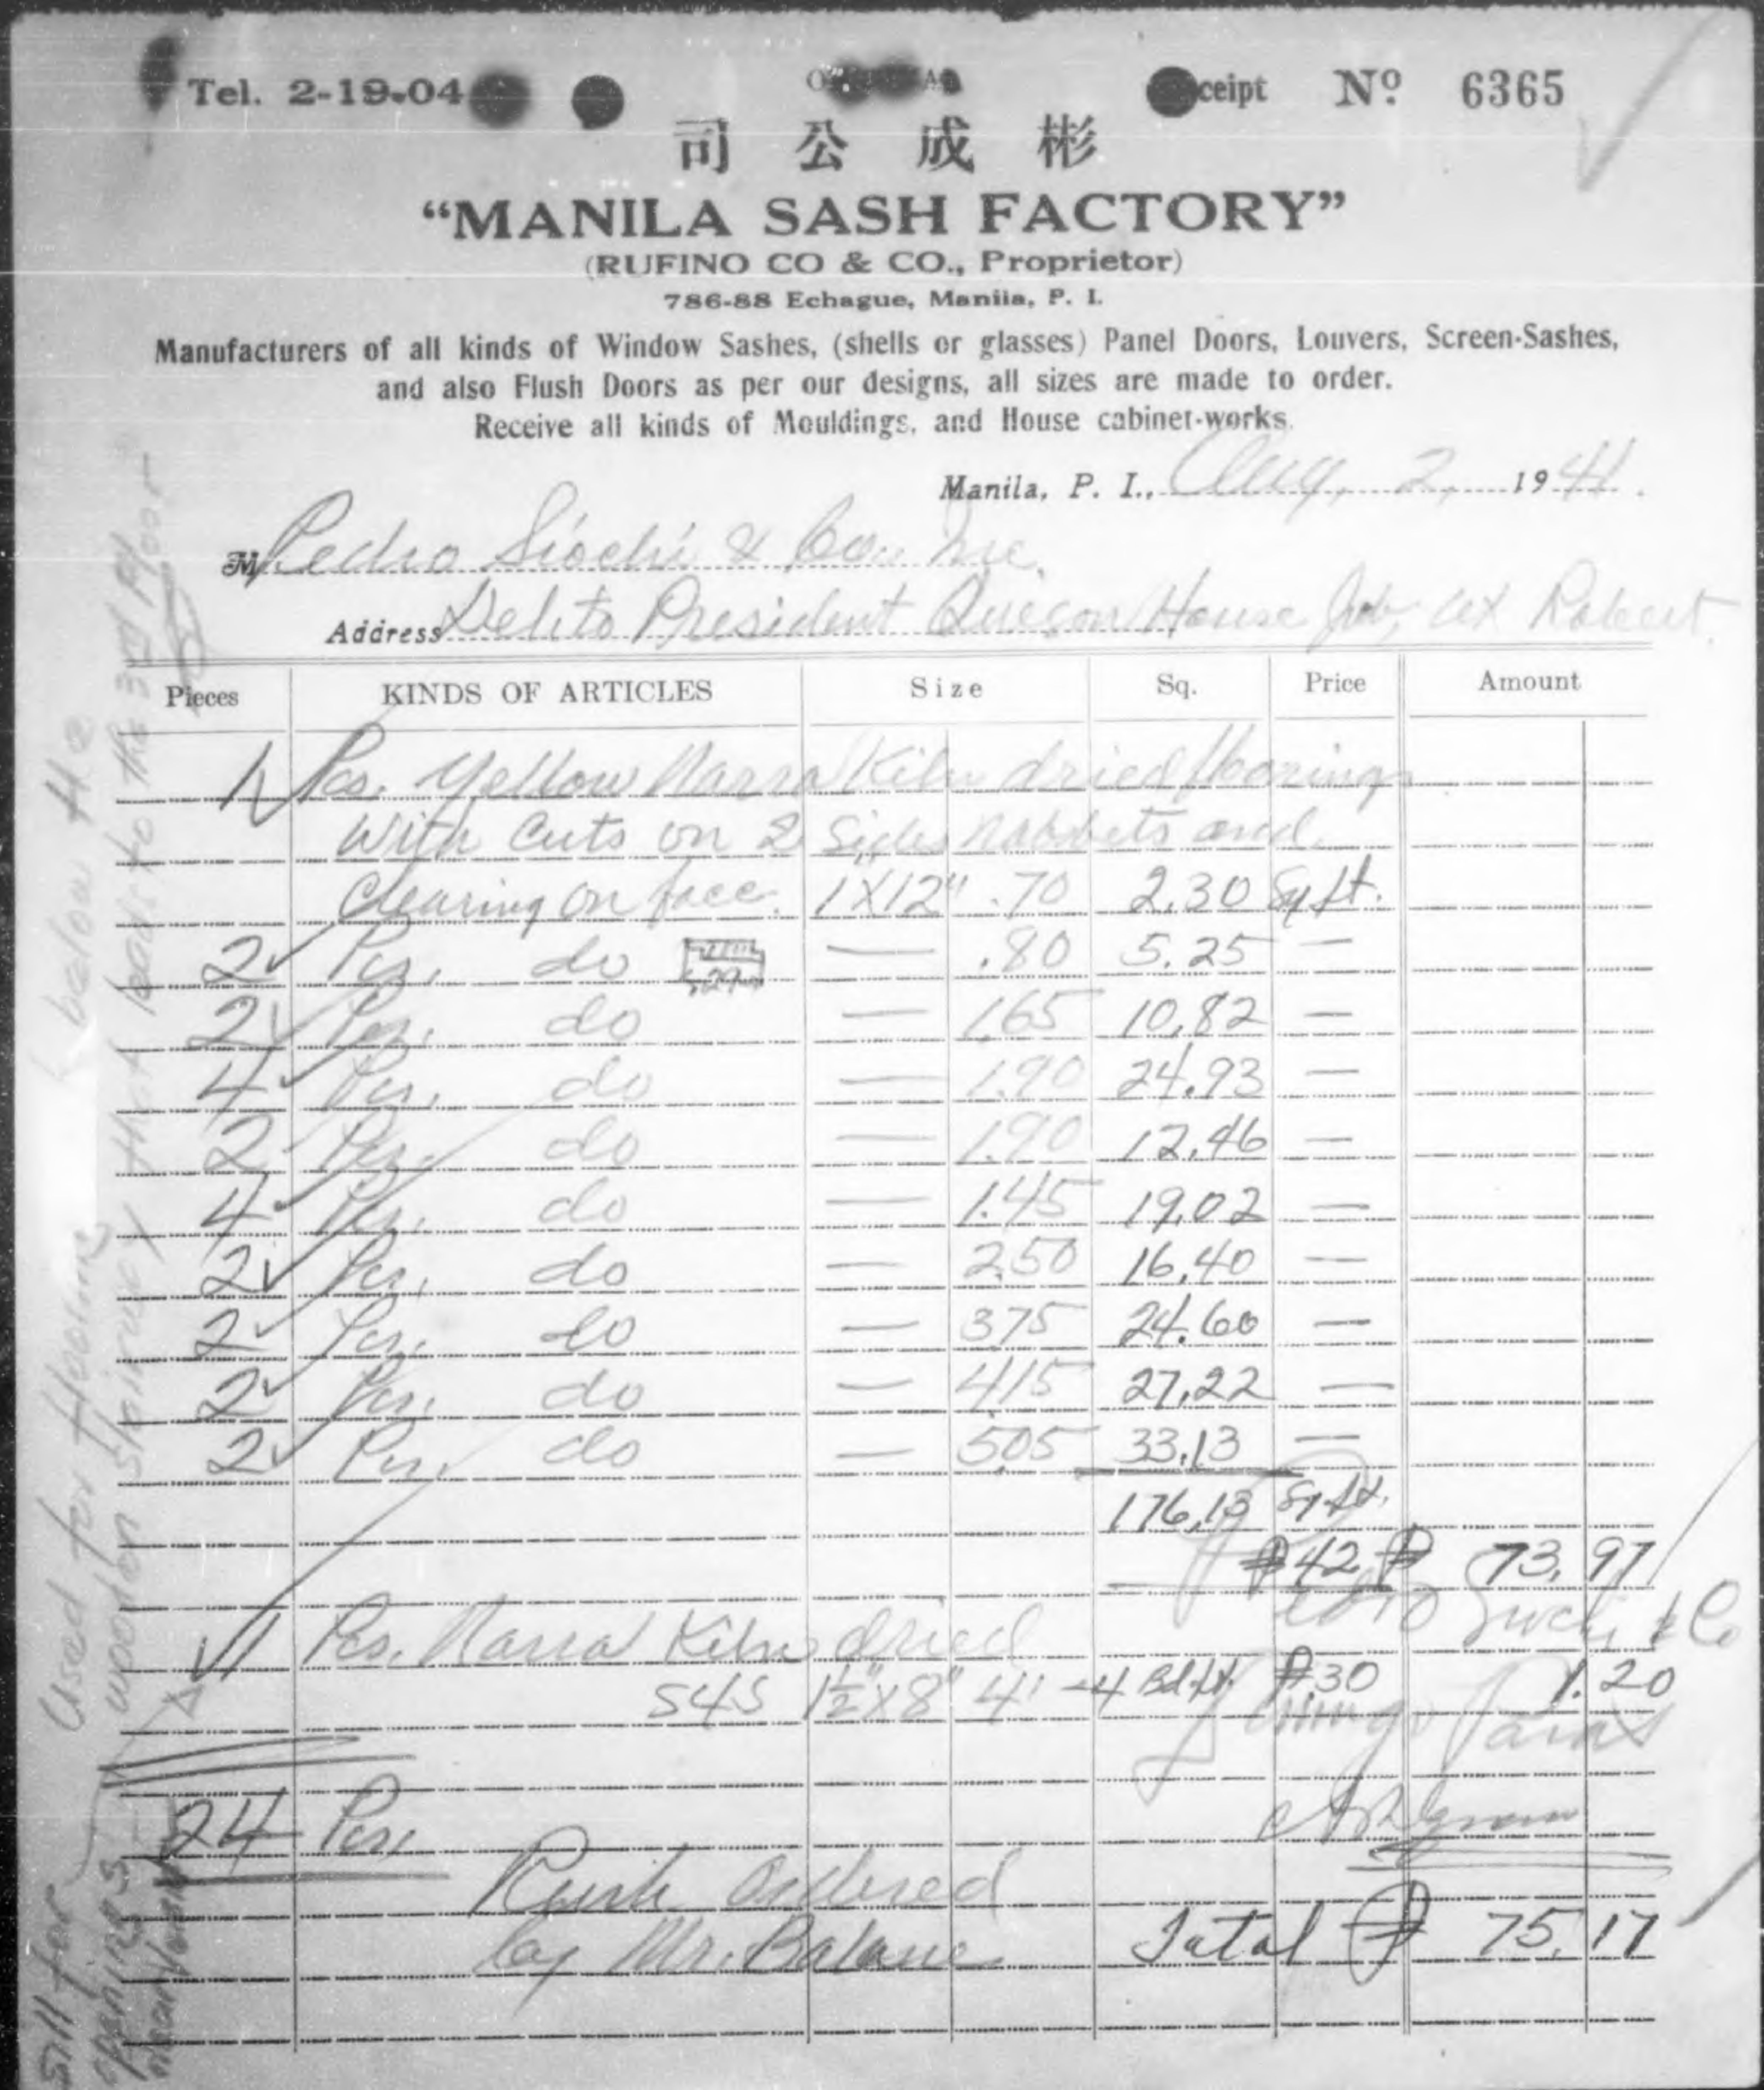 Tel. 2-19-04
ceipt Nº 6365
司 公 成 彬
“MANILA SASH FACTORY”
(RUFINO CO & CO., Proprietor)
786-88 Echague, Manila, P. I.
Manufacturers of all kinds of Window Sashes, (shells or glasses) Panel Doors, Louvers, Screen-Sashes,
and also Flush Doors as per our designs, all sizes are made to order.
Receive all kinds of Mouldings, and House cabinet-works.
Manila, P. I., Aug. 2, 1941.
M Pedro Siochi & Co., Inc.
Address Del. to President Quezon House Job, at Robert
Pieces KINDS OF ARTICLES Size Sq. Price Amount
1 Pcs. Yellow Narra Kiln dried floorings
with cuts on 2 sides rabbets and
clearing on face. 1X12" .70 2.30 Sq ft.
2 Pcs. do — .80 5.25 —
2 Pcs. do — 1.65 10.82 —
4 Pcs. do — 1.90 24.93 —
2 Pcs. do — 1.90 12.46 —
4 Pcs. do — 1.45 19.02 —
2 Pcs. do — 2.50 16.40 —
2 Pcs. do — 375 24.60 —
2 Pcs. do — 415 27.22 —
2 Pcs. do — 505 33.13 —
176.13 Sq ft.
₱.42 ₱ 73.97
1 Pcs. Narra Kiln dried
S4S 1½" x 8" 4' - 4 Bd. ft. ₱.30 1.20
24 Pcs.
Rush Ordered
by Mr. Total ₱ 75.17
Used for flooring below the
wooden stairway that leads to the 3rd Floor
Sill for
openings